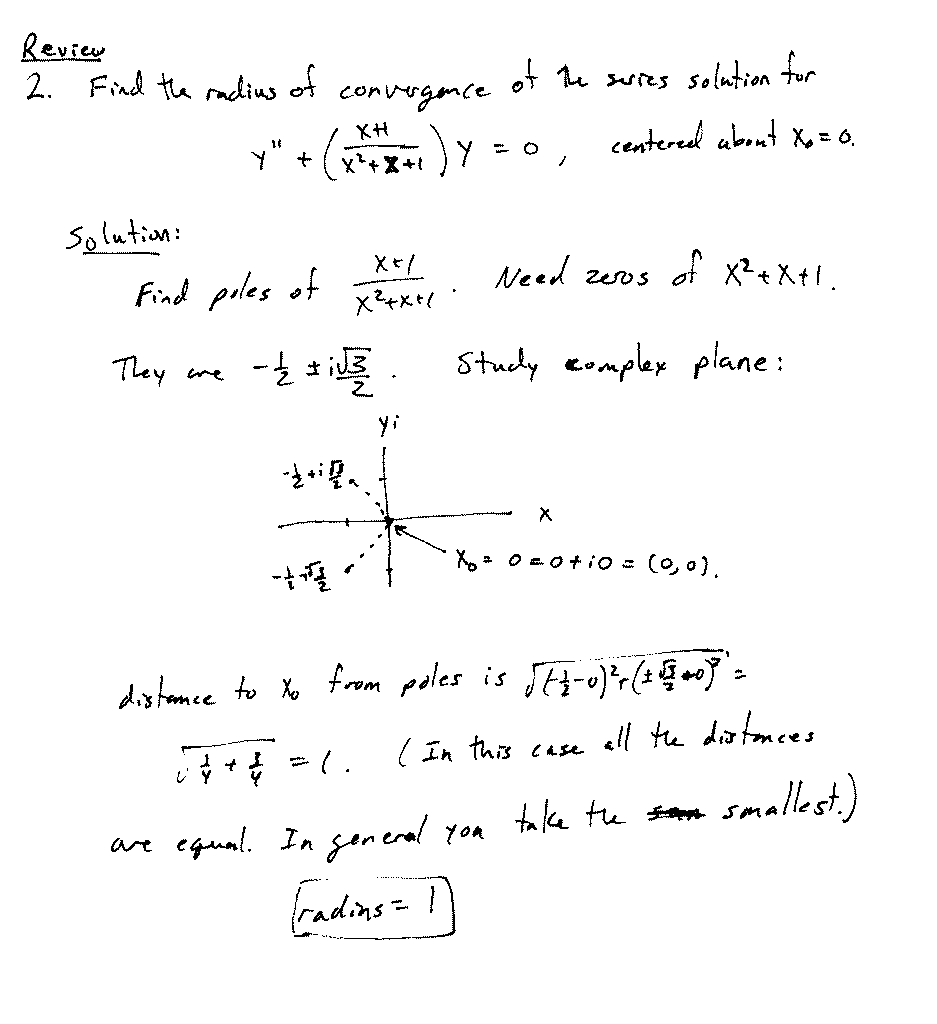 Review
2. Find the radius of convergence of the series solution for
y'' + ( (x+1)/(x²+x+1) ) y = 0, centered about x₀ = 0.
Solution:
Find poles of (x+1)/(x²+x+1). Need zeros of x²+x+1.
They are -1/2 ± i√3/2. Study complex plane:
yi
-1/2 + i √3/2
x
x₀ = 0 = 0 + i0 = (0,0).
distance to x₀ from poles is √((-1/2-0)² + (±√3/2+0)²) =
√(1/4 + 3/4) = 1. (In this case all the distances
are equal. In general you take the smallest.)
radius = 1